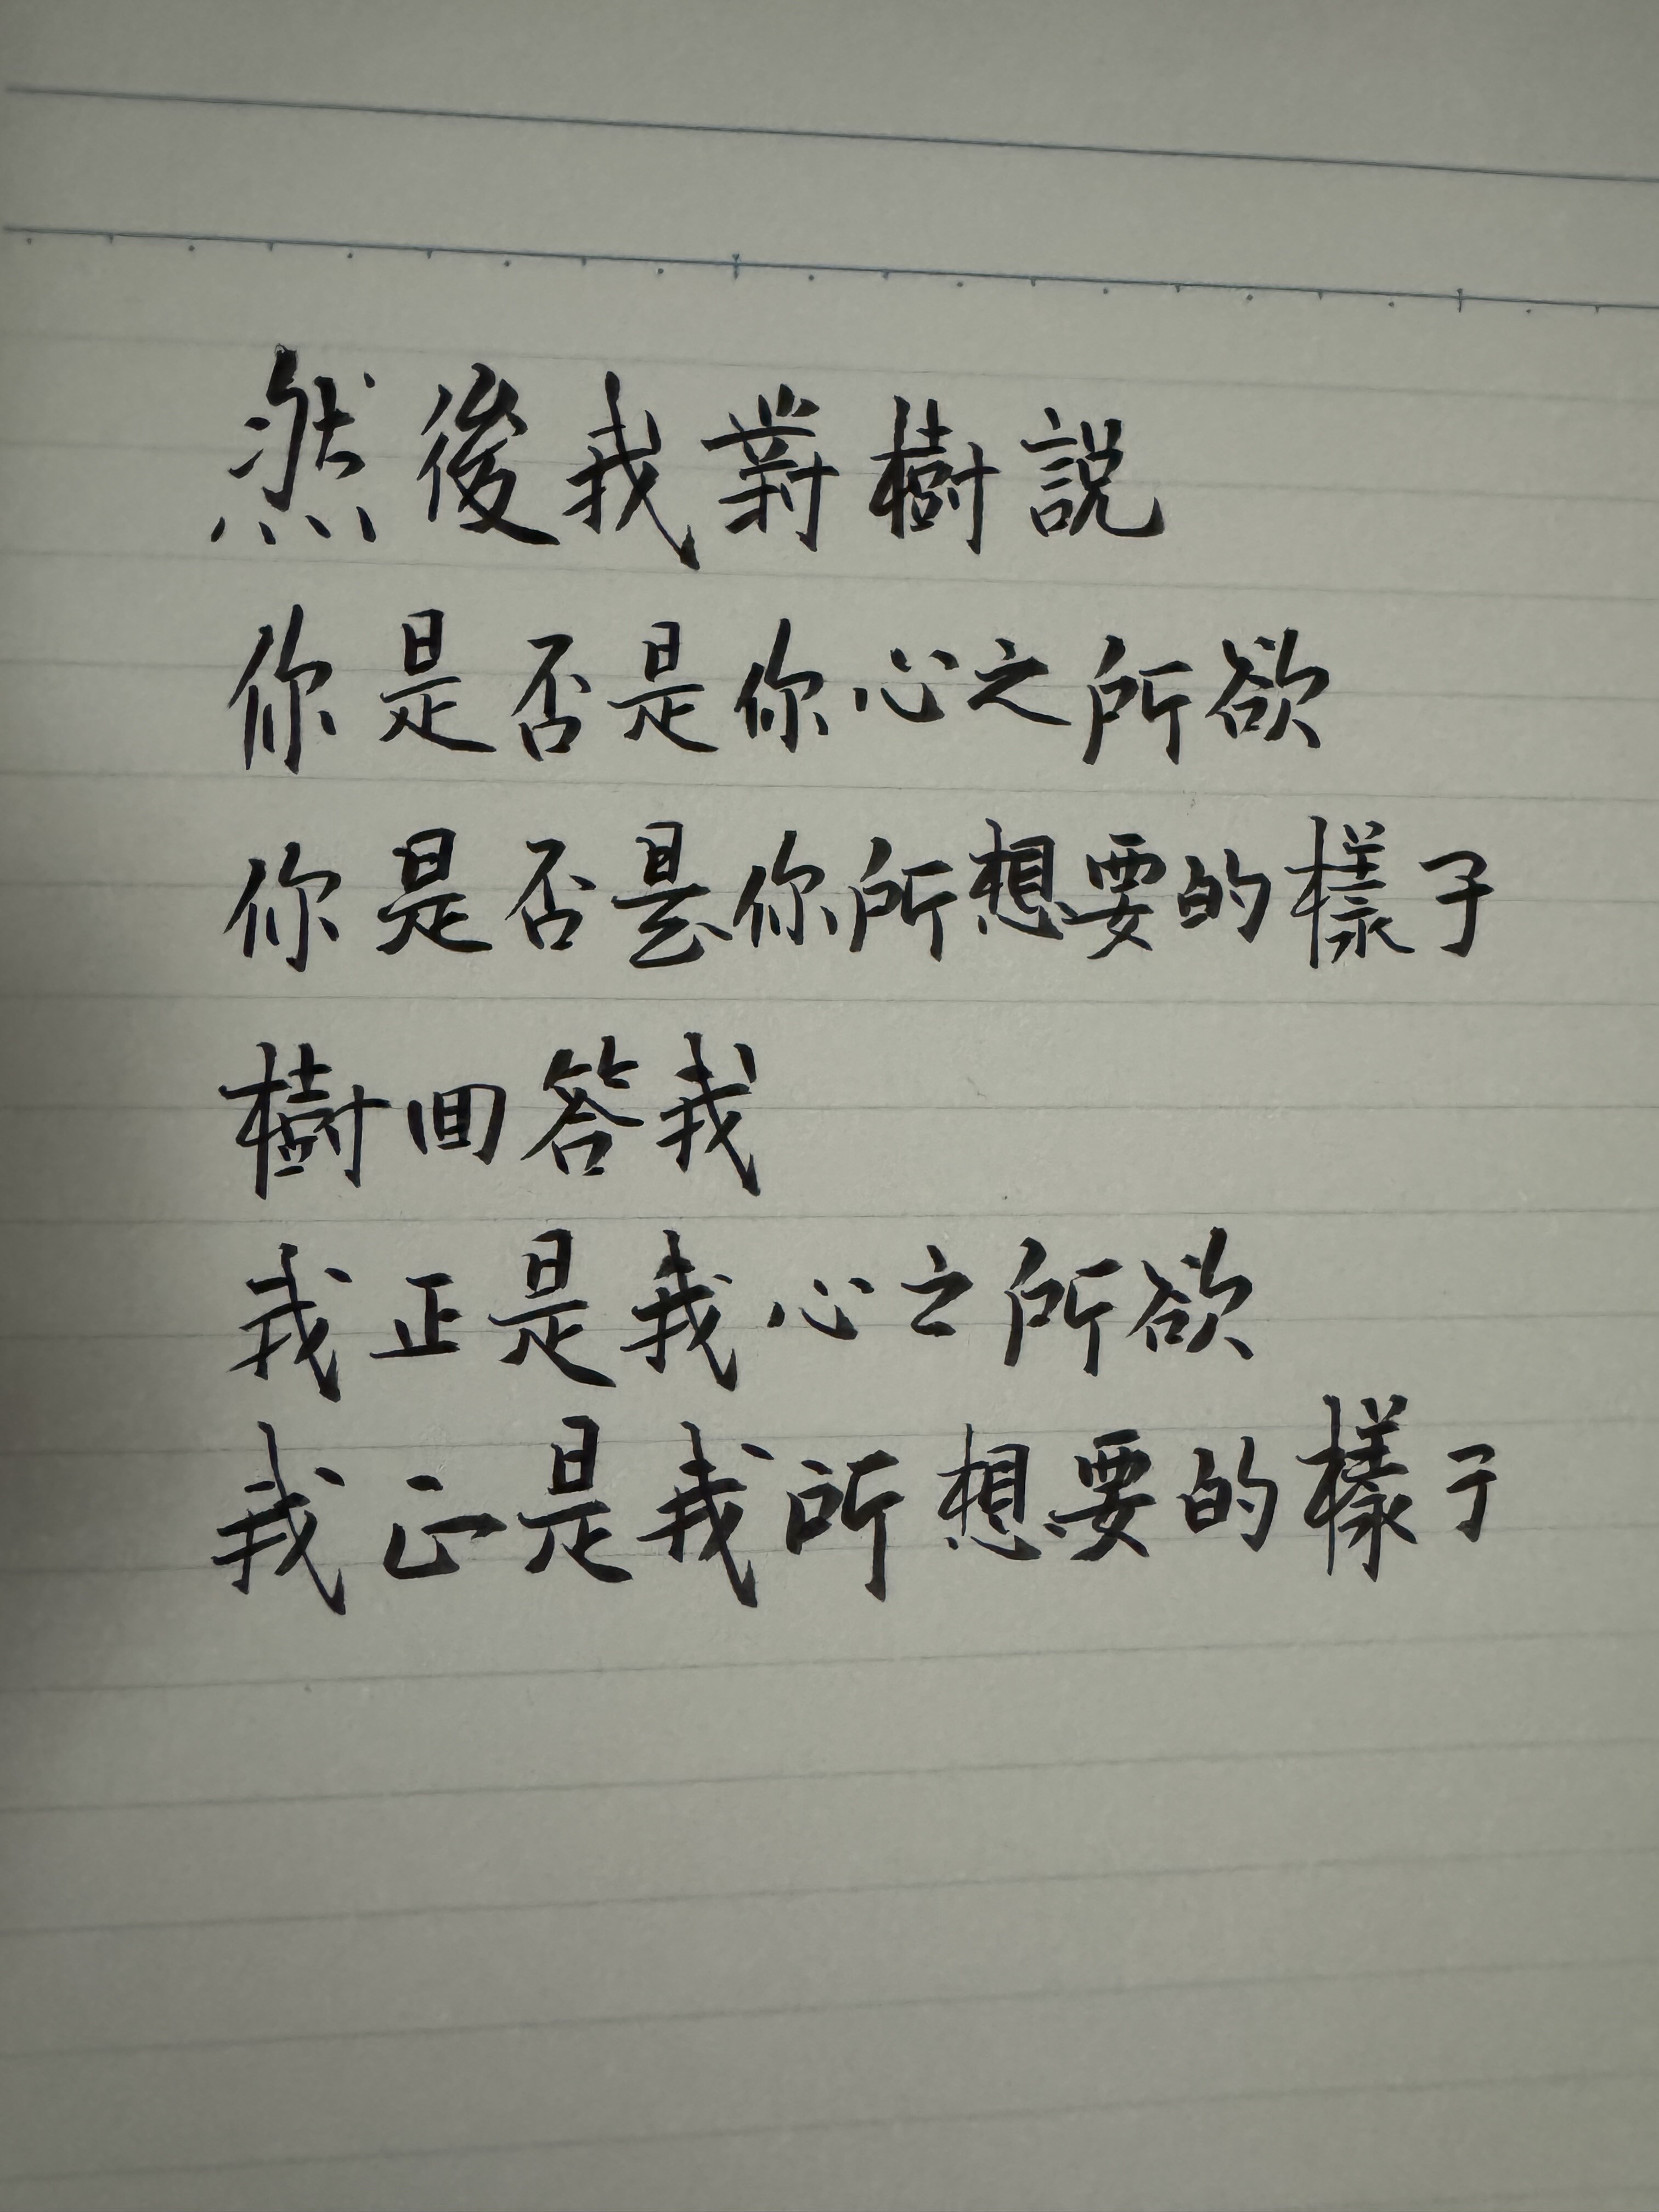 然後我對樹説
你是否是你心之所欲
你是否是你所想要的樣子
樹回答我
我正是我心之所欲
我正是我所想要的樣子